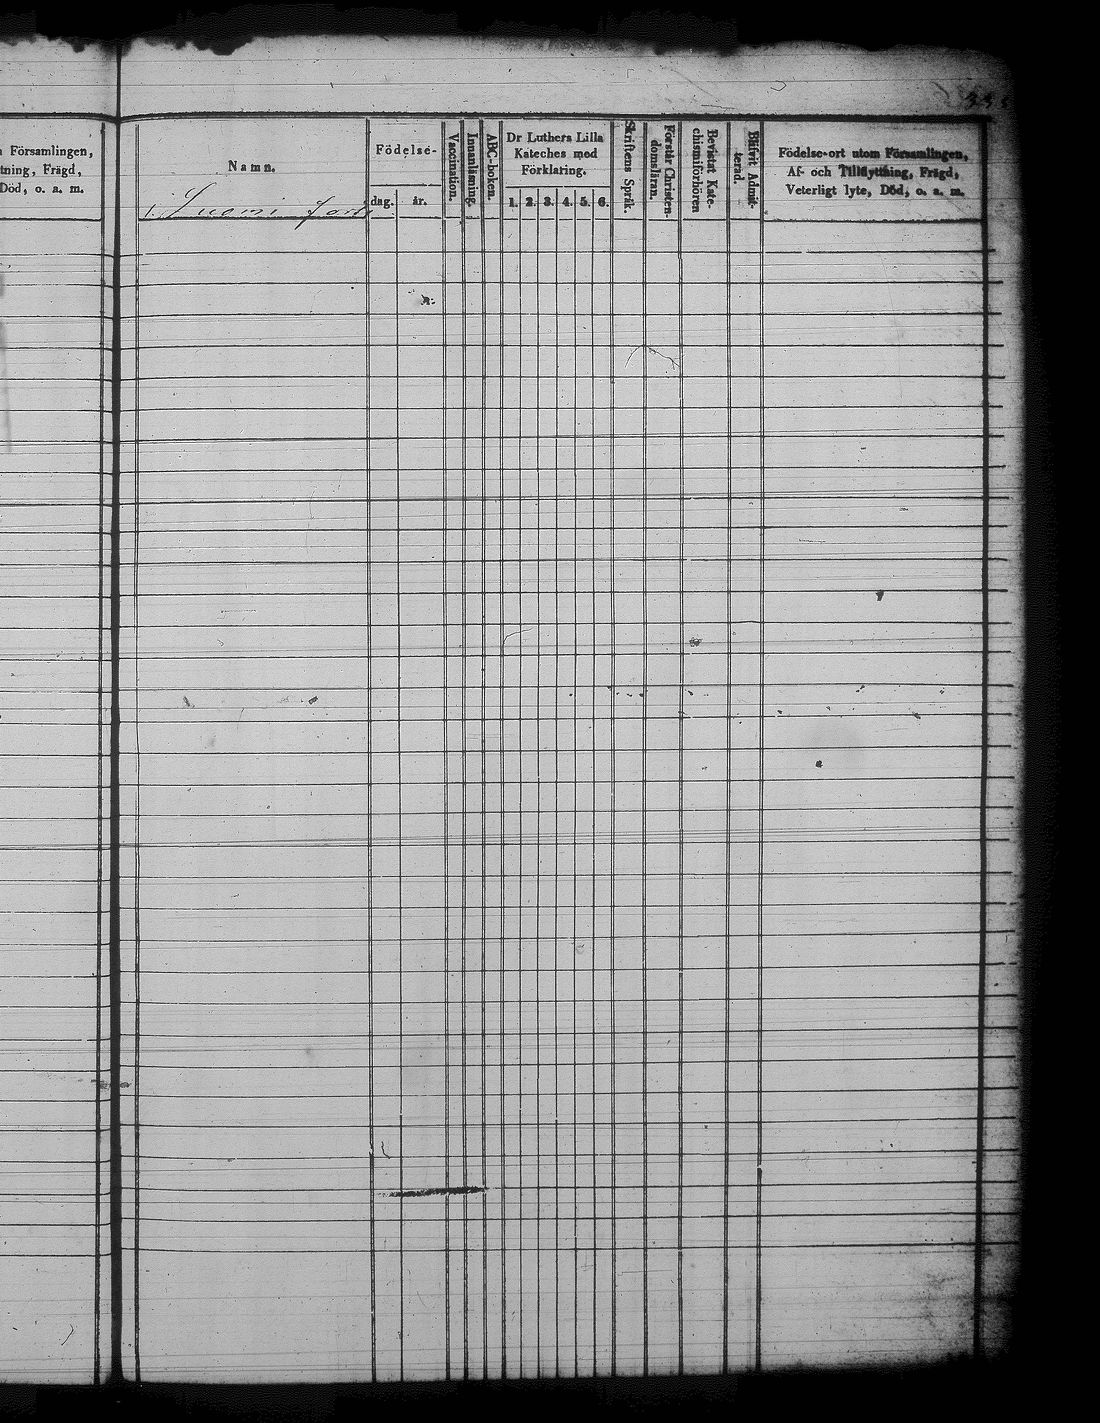 Församlingen,
tning, Frägd,
Död, o. a. m.
Namn.
Födelse-
dag. år.
Vaccination.
Innanläsning.
ABC-boken.
Dr Luthers Lilla
Kateches med
Förklaring.
1. 2. 3. 4. 5. 6.
Skriftens Språk.
Förstår Christen-
domsläran.
Bevistat Kate-
chismiförhören
Blifvit Admit-
terad.
Födelse-ort utom Församlingen,
Af- och Tillflyttning, Frägd,
Veterligt lyte, Död, o. a. m.